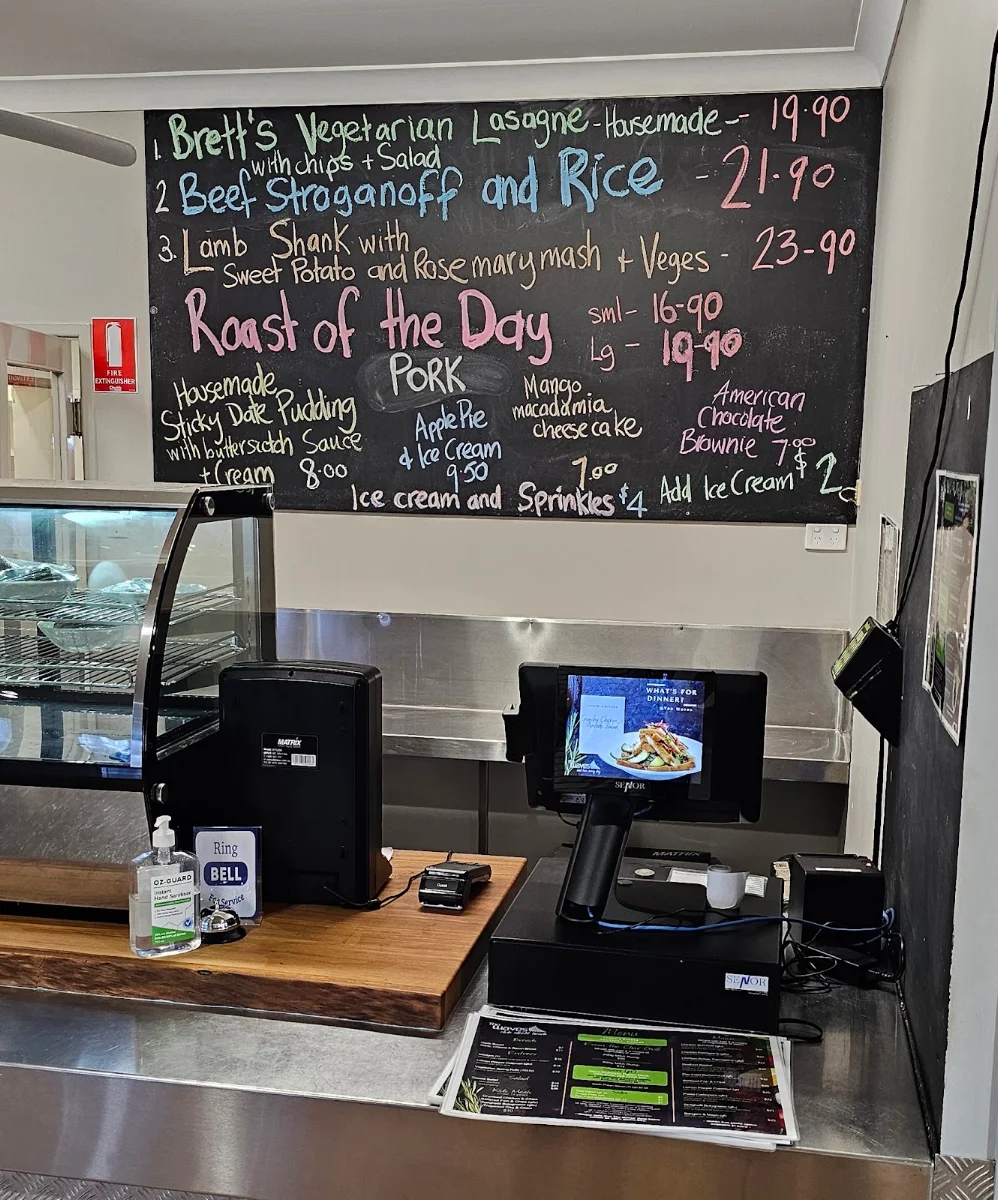 1. Brett's Vegetarian Lasagne - Housemade -- 19.90
with chips + Salad
2 Beef Stroganoff and Rice - 21.90
3. Lamb Shank with
Sweet Potato and Rosemary mash + Veges - 23-90
Roast of the Day
sml - 16-90
Lg - 19-90
PORK
Housemade
Sticky Date Pudding
with butterscotch Sauce
+ Cream 8.00
Apple Pie
& Ice Cream
9.50
Mango
macadamia
cheesecake
7.00
American
Chocolate
Brownie 7.00
Add Ice Cream $2
Ice cream and Sprinkles $4
FIRE
EXTINGUISHER
MATRIX
WHAT'S FOR
DINNER?
SENOR
OZ-GUARD
Instant
Hand Sanitiser
Ring
BELL
For Service
MATRIX
SENOR
Waves
Menu